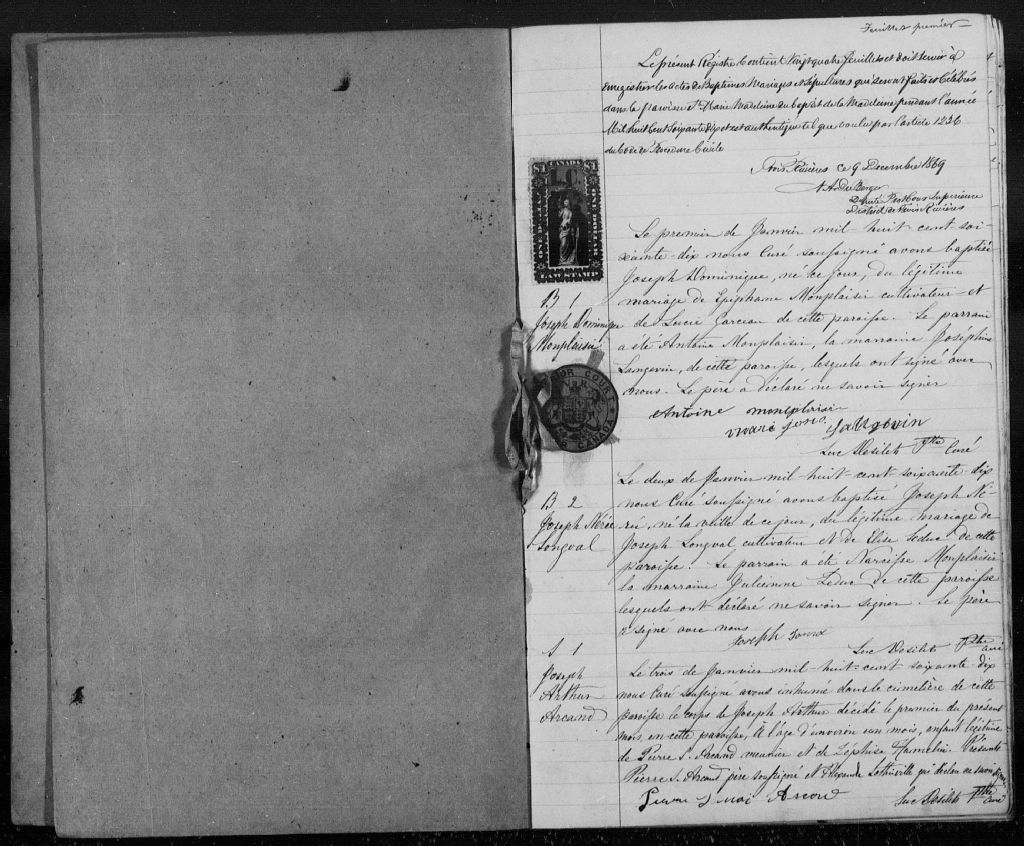 Feuillet premier
Le présent Régistre Contient Vingt quatre feuillets et doit servir à
enregistrer les actes de Baptêmes Mariages et Sépultures qui seront faits et Célébrés
dans la paroisse Ste Marie Madeleine du Cap et de la Madeleine pendant l'année
Mil huit Cent Soixante Dix et est authentique tel que voulu par l'article 1236
du Code de Procédure Civile
Trois Rivières ce 9 Decembre 1869
Député Prot Cour Supérieure
District de Trois Rivières
CANADA
$1 $1
L C
ONE DOLLAR
ONE DOLLAR
LAW STAMP
Le premier de Janvier mil huit cent soi-
xante-dix nous Curé soussigné avons baptisé
Joseph Dominique, né ce jour, du légitime
B 1
mariage de Epiphane Monplaisir cultivateur et
Joseph Dominique
de Lucie Garceau de cette paroisse. Le parrain
Monplaisir
a été Antoine Monplaisir, la marraine Joséphine
Langevin, de cette paroisse, lesquels ont signé avec
nous. Le père a déclaré ne savoir signer
COURT
CANADA
Antoine monplaisir
Langevin
Luc Desilets Ptre Curé
Le deux de Janvier mil-huit-cent soixante dix
B 2
nous Curé soussigné avons baptisé Joseph Né-
Joseph Nérée
rée, né la veille de ce jour, du légitime mariage de
Longval
Joseph Longval cultivateur et de Elise Leduc de cette
paroisse. Le parrain a été Narcisse Monplaisir
la marraine Julienne Leduc de cette paroisse
lesquels ont déclaré ne savoir signer. Le père
a signé avec nous
Joseph
Luc Desilets Ptre curé
S 1
Joseph
Arthur
Arcand
Le trois de Janvier mil-huit-cent soixante dix
nous Curé soussigné avons inhumé dans le cimetière de cette
paroisse le corps de Joseph Arthur décédé le premier du présent
mois, en cette paroisse, à l'âge d'environ un mois, enfant légitime
de Pierre S. Arcand meunier et de Zéphise Hamelin. Présents
Pierre S. Arcand père soussigné et Alexandre Lottinville qui déclare ne savoir signer
Luc Desilets Ptre curé